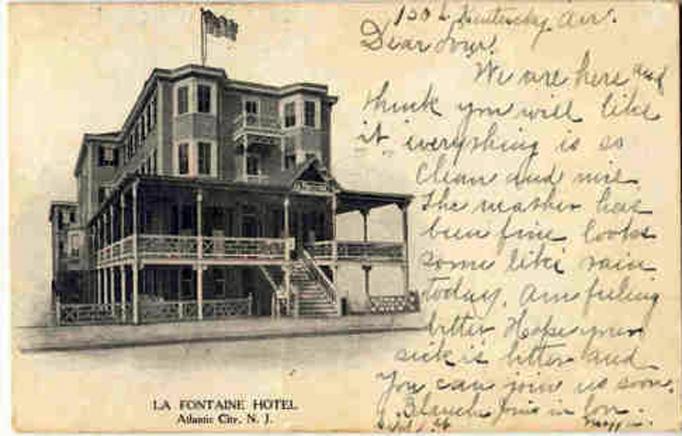 150 S. Kentucky Av.
Dear
We are here and
think you will like
it, everything is so
clean and nice.
The weather has
been fine, looks
some like rain
today. am feeling
better. Hope your
sick is better and
you can join us soon.
Blanche joins in love.
LA FONTAINE HOTEL
Atlantic City, N. J.